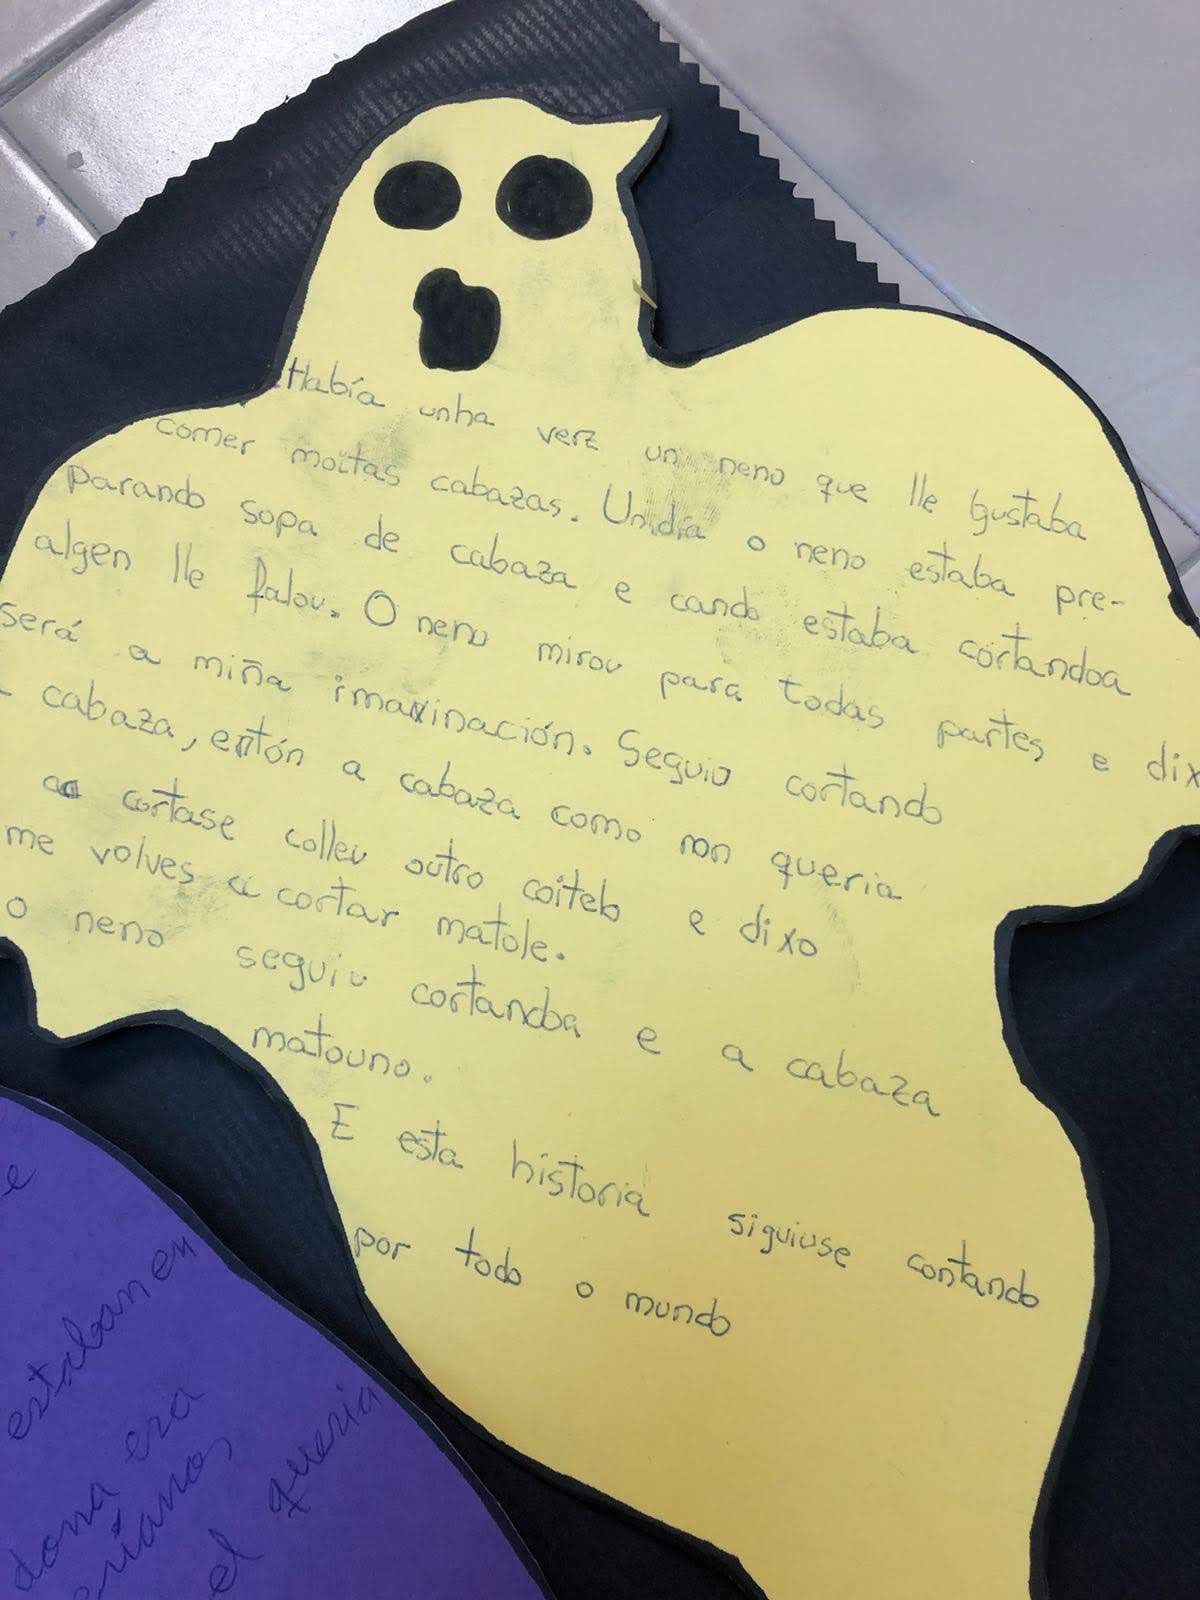 Había unha verz un neno que lle gustaba
comer moitas cabazas. Un día o neno estaba pre-
parando sopa de cabaza e cando estaba cortandoa
algen lle falou. O neno mirou para todas partes e dix
será a miña imaxinación. Seguio cortando
cabaza, entón a cabaza como non queria
cortase colleu outro coitelo e dixo
me volves a cortar matole.
o neno seguiu cortandoa e a cabaza
matouno.
E esta historia siguiuse contando
por todo o mundo
e
estaban en
dona era
el queria